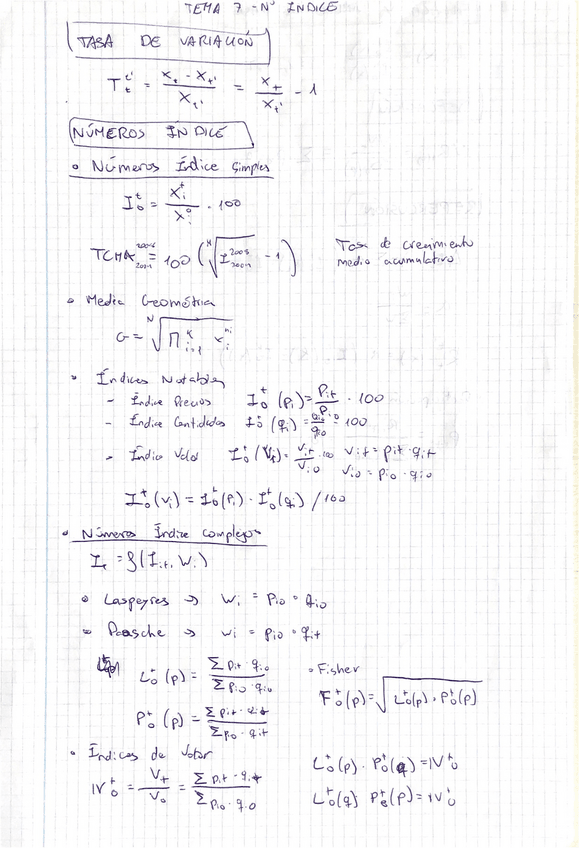 TEMA 7 - Nº INDICE
TASA DE VARIACIÓN
T_t^t' = (x_t - x_t') / x_t' = x_t / x_t' - 1
NÚMEROS ÍNDICE
• Números Índice Simples
I_0^t = x_i^t / x_i^0 · 100
TCMA = 100 ( √I - 1 )
Tasa de crecimiento
medio acumulativo
• Media Geométrica
G = ᴺ√(∏_{i=1}^k x_i^{n_i})
• Índices Notables
- Índice Precios I_0^t (p_i) = p_it / p_i0 · 100
- Índice Cantidades I_0^t (q_i) = q_it / q_i0 · 100
- Índice Valor I_0^t (V_i) = V_it / V_i0 · 100 V_it = p_it · q_it
V_i0 = p_i0 · q_i0
I_0^t (v_i) = I_0^t (p_i) · I_0^t (q_i) / 100
• Números Índice complejos
I_t = f(I_it, W_i)
• Laspeyres → W_i = p_i0 · q_i0
• Paasche → w_i = p_i0 · q_it
L_0^t (p) = Σ p_it · q_i0 / Σ p_i0 · q_i0
• Fisher
F_0^t (p) = √(L_0^t (p) · P_0^t (p))
P_0^t (p) = Σ p_it · q_it / Σ p_i0 · q_it
• Índices de Valor
IV_0^t = V_t / V_0 = Σ p_it · q_it / Σ p_i0 · q_i0
L_0^t (p) · P_0^t (q) = IV_0^t
L_0^t (q) P_0^t (p) = IV_0^t